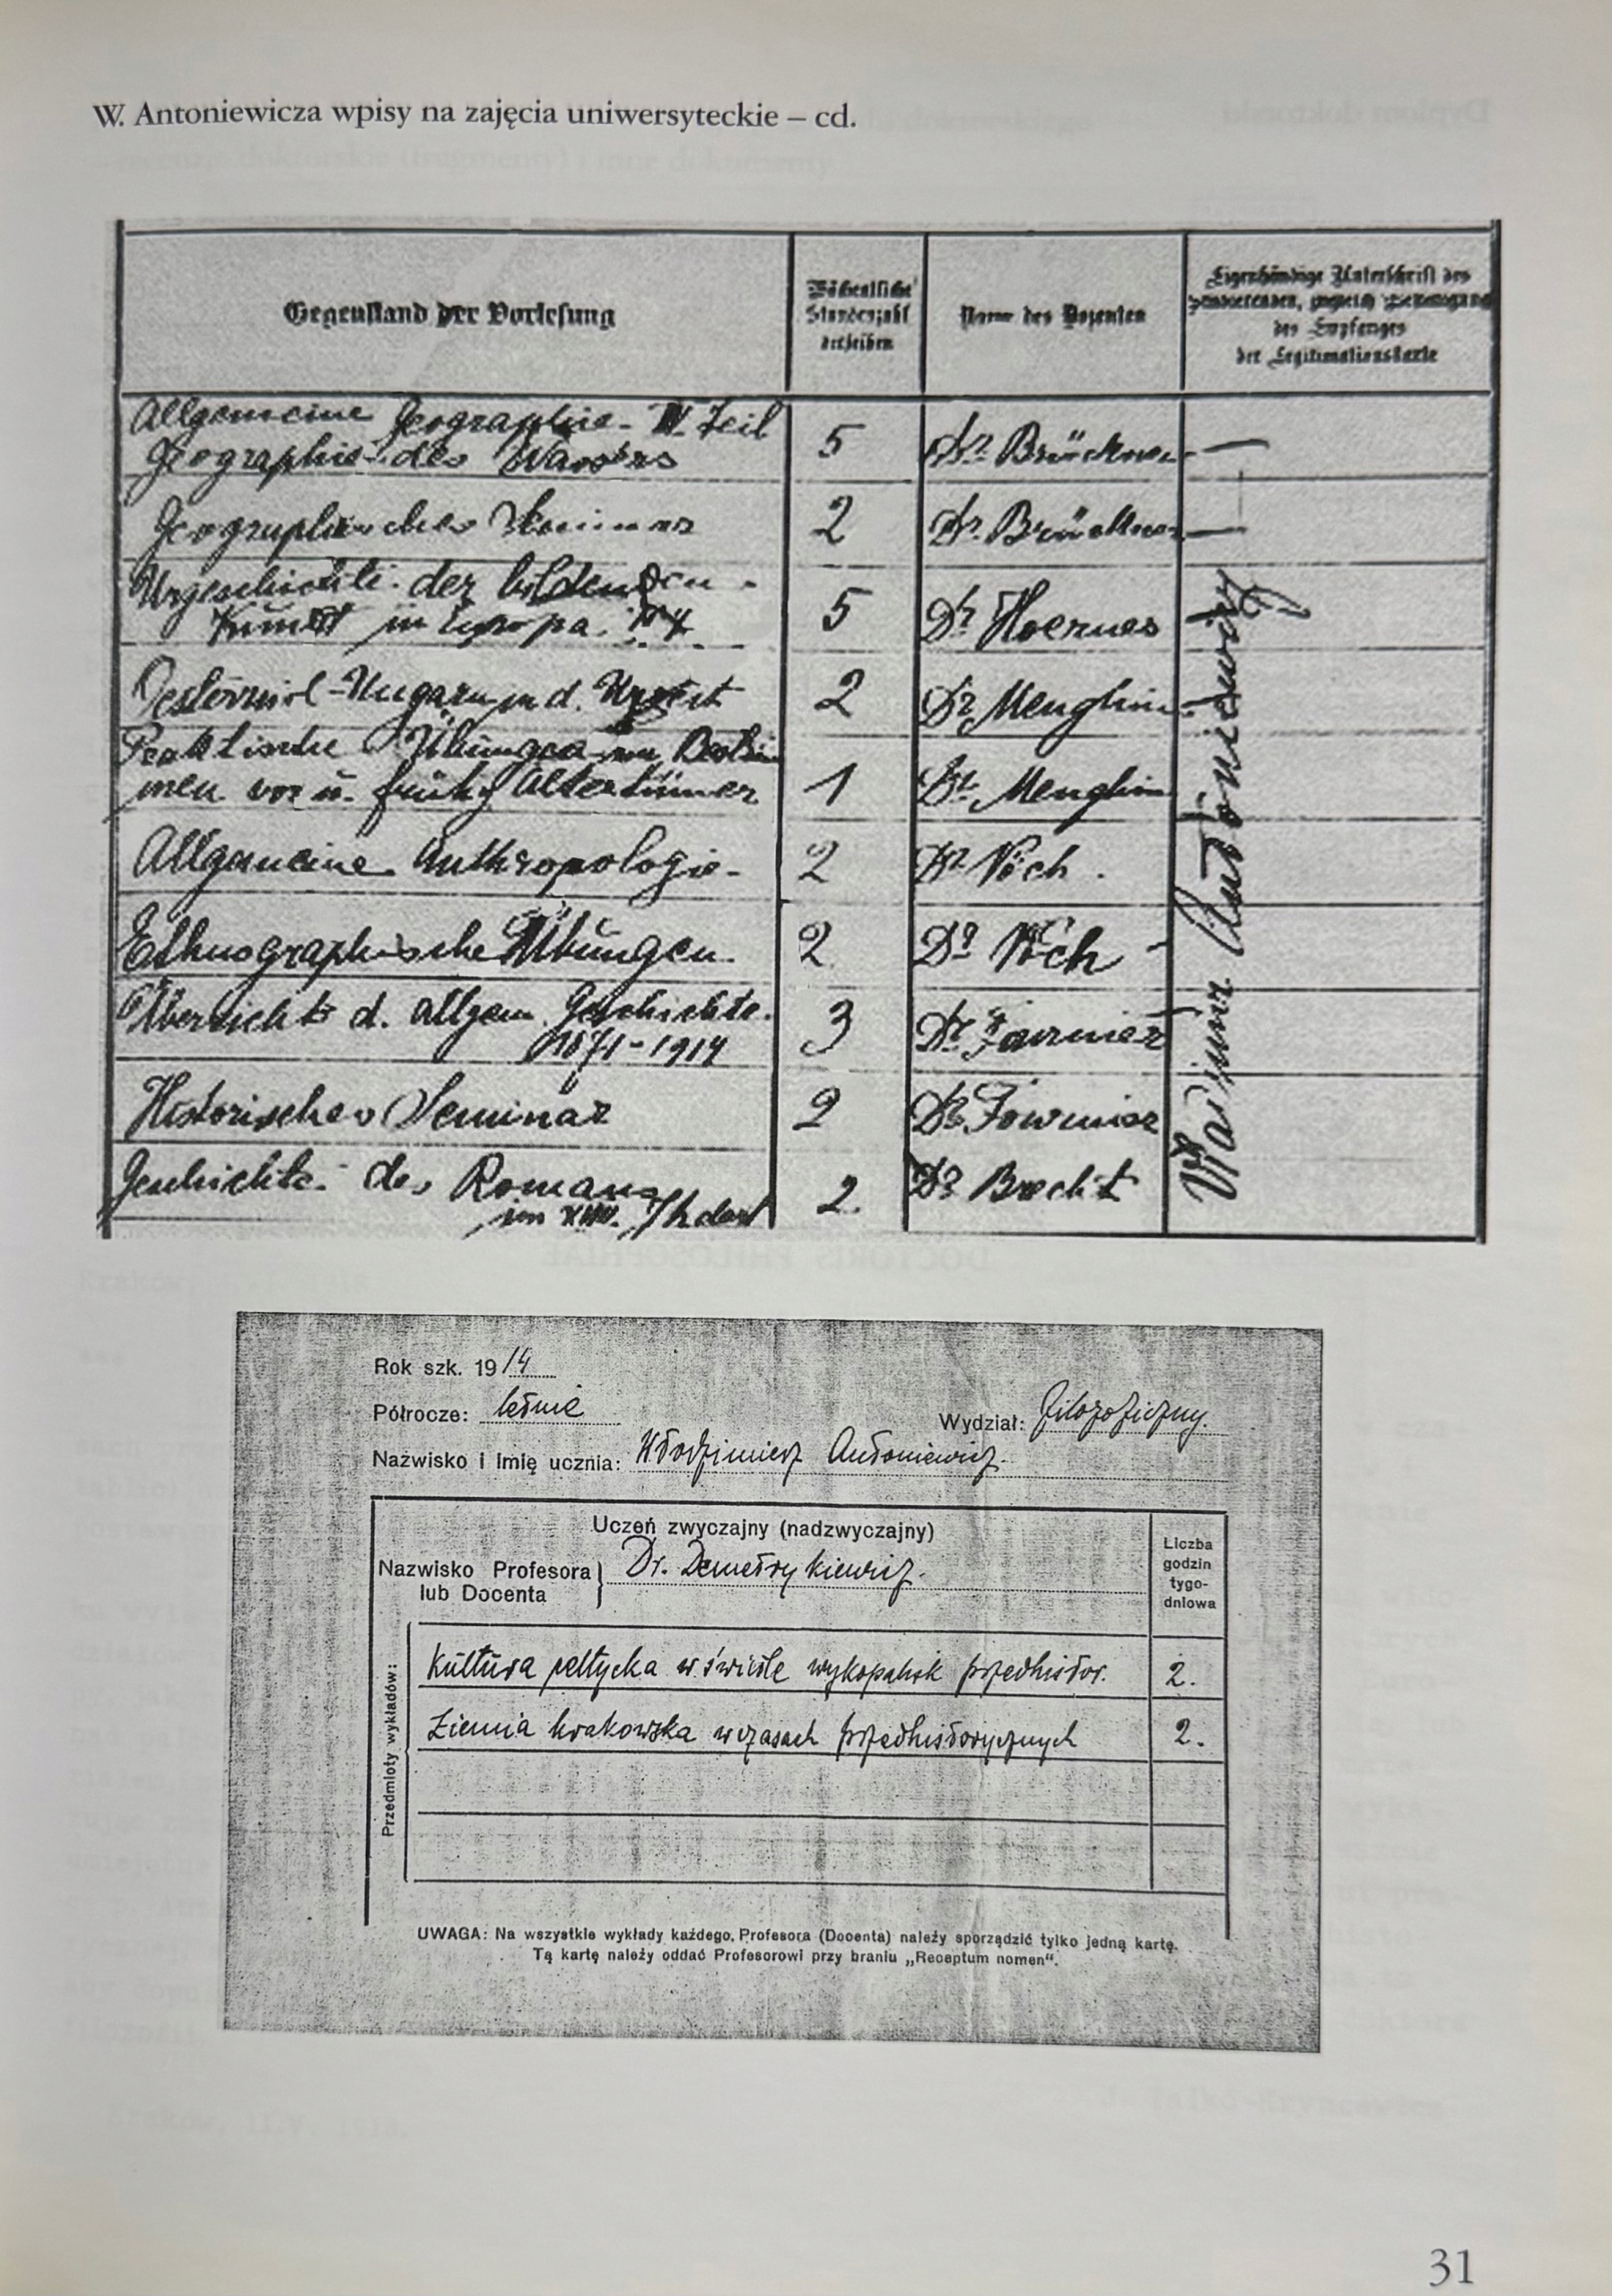 W. Antoniewicza wpisy na zajęcia uniwersyteckie – cd.
Gegenstand der Vorlesung
Wöchentliche Stundenzahl derselben
Name des Dozenten
Eigenhändige Unterschrift des Studierenden, zugleich Bestätigung des Empfanges der Legitimationskarte
Allgemeine Geographie - II. Teil
Geographie des Wassers 5 Dr. Brückner —
Geographisches Seminar 2 Dr. Brückner —
Urgeschichte der bildenden
Kunst in Europa. 5 Dr Hoernes
Oesterreich-Ungarn in d. Urzeit 2 Dr Menghin
Praktische Übungen im Bestim
men vor u. frühg Altertümer 1 Dr. Menghin
Allgemeine Anthropologie - 2 Dr Pöch .
Ethnographische Übungen. 2 Dr Pöch -
Übersicht d. allgem. Geschichte.
1871-1914 3 Dr. Fournier
Historisches Seminar 2 Dr. Fournier
Geschichte des Romans
im XVIII. Jhdert 2. Dr Brecht
Antoniewicz
Rok szk. 1914
Półrocze: letnie
Wydział: filozoficzny.
Nazwisko i imię ucznia: Włodzimierz Antoniewicz.
Uczeń zwyczajny (nadzwyczajny)
Liczba godzin tygo-dniowa
Nazwisko Profesora
lub Docenta } Dr. Demetrykiewicz.
Przedmioty wykładów:
Kultura celtycka w świetle wykopalisk przedhistor. 2.
Ziemia krakowska w czasach przedhistorycznych 2.
UWAGA: Na wszystkie wykłady każdego Profesora (Docenta) należy sporządzić tylko jedną kartę.
Tą kartę należy oddać Profesorowi przy braniu „Receptum nomen".
31